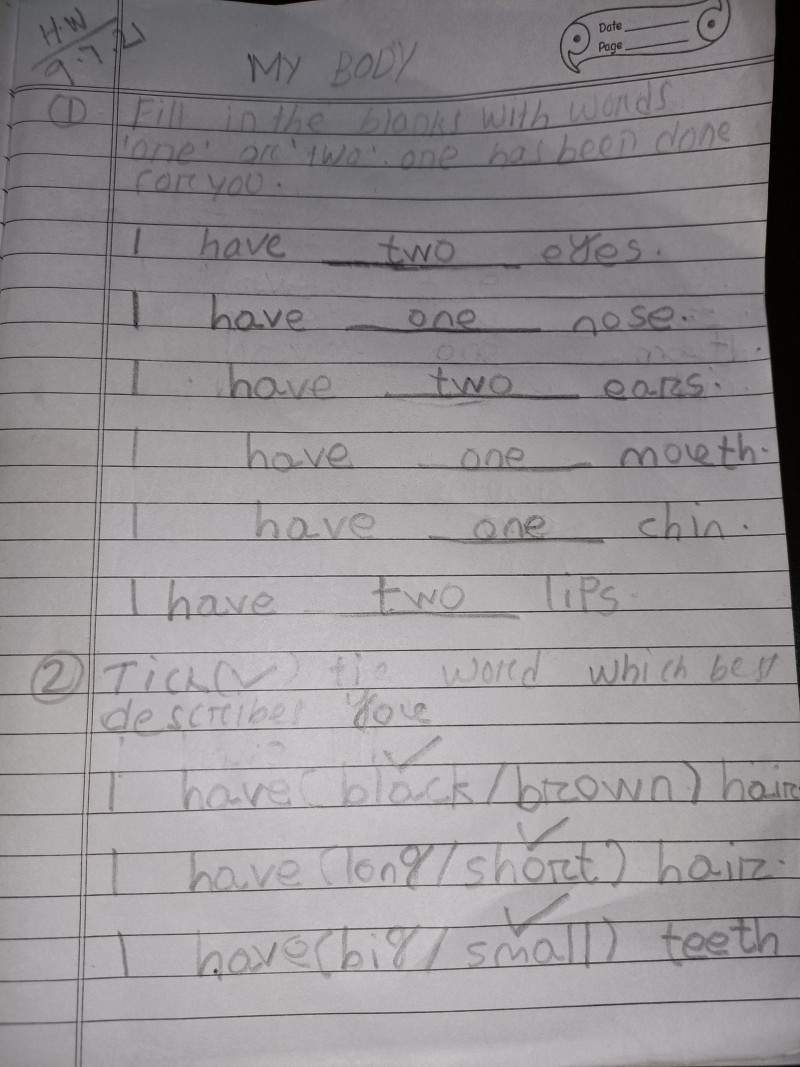 H.W
9.7.21
Date
Page
MY BODY
① Fill in the blanks with words
'one' or 'two'. one has been done
for you.
I have two eyes.
I have one nose.
I have two ears.
I have one mouth.
I have one chin.
I have two lips.
② Tick(✓) the word which best
describes you
I have (black/brown) hair
I have (long/short) hair.
I have (big/small) teeth